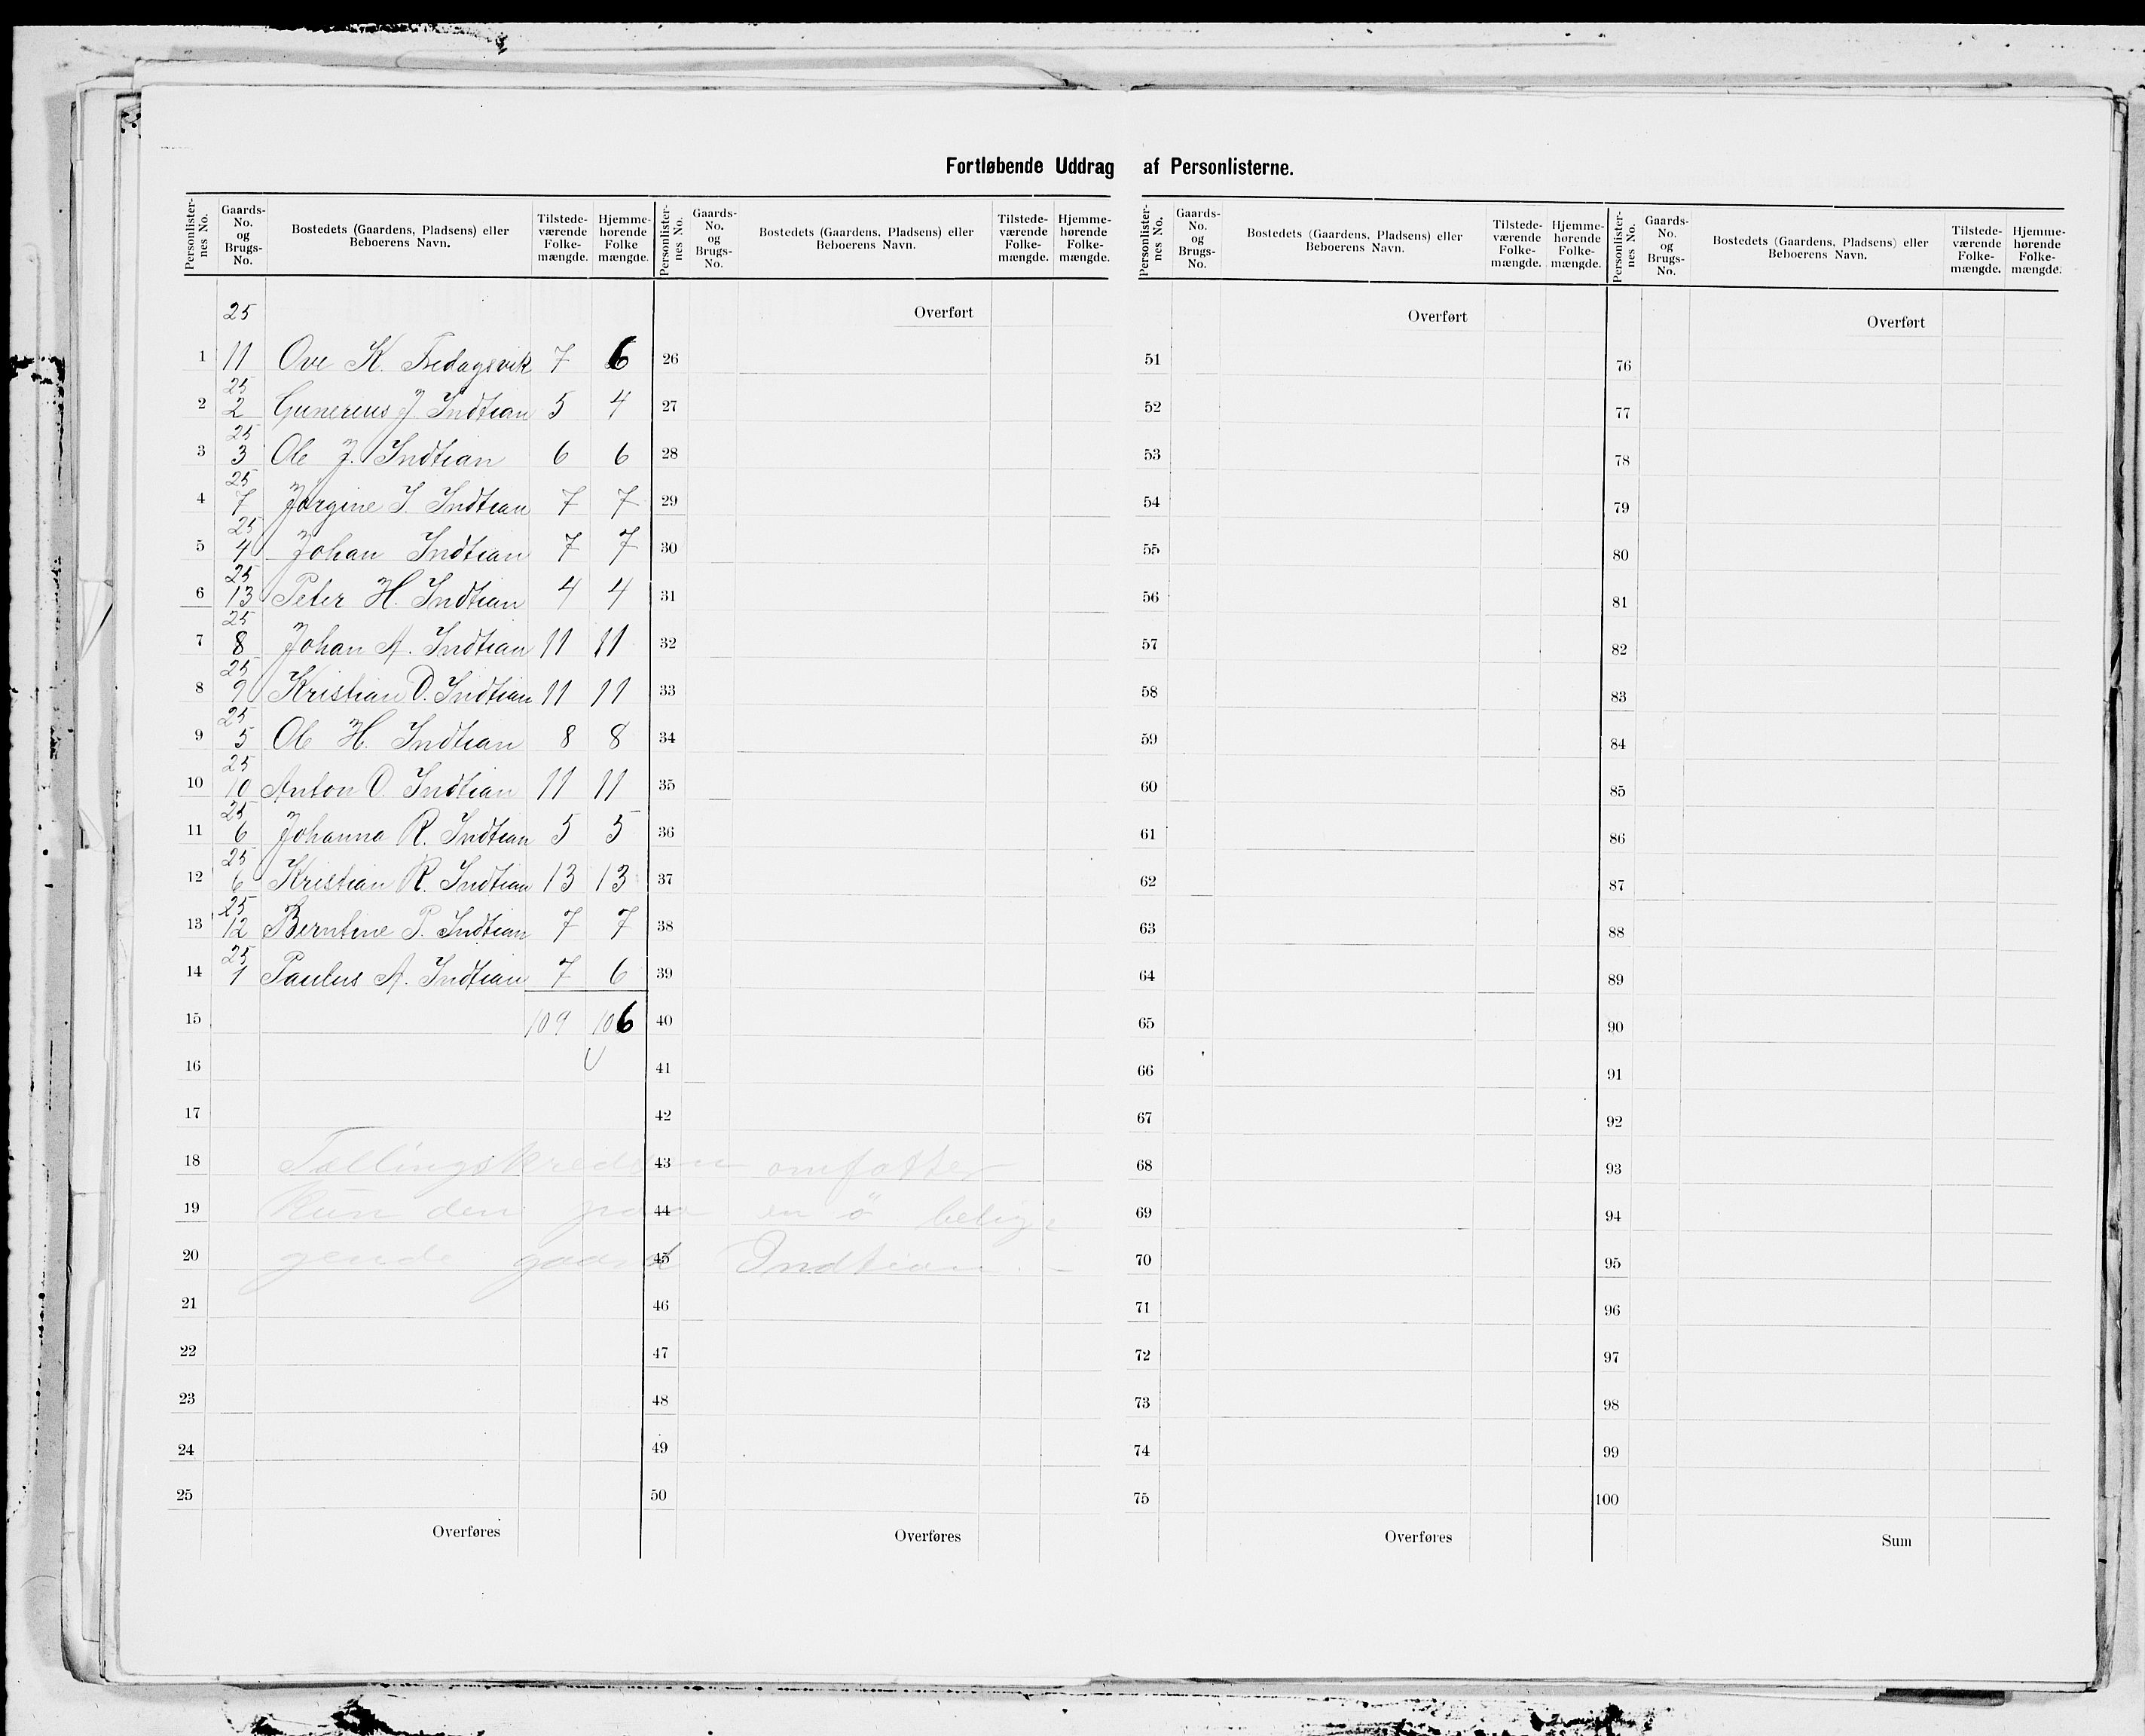 Fortløbende Uddrag af Personlisterne.
Personlister-nes No. Gaards-No. og Brugs-No. Bostedets (Gaardens, Pladsens) eller Beboerens Navn. Tilstede-værende Folke-mængde. Hjemme-hørende Folke mængde. Personlister-nes No. Gaards-No. og Brugs-No. Bostedets (Gaardens, Pladsens) eller Beboerens Navn. Tilstede-værende Folke-mængde. Hjemme-hørende Folke-mængde. Personlister-nes No. Gaards-No. og Brugs-No. Bostedets (Gaardens, Pladsens) eller Beboerens Navn. Tilstede-værende Folke-mængde. Hjemme-hørende Folke-mængde. Personlister-nes No. Gaards-No. og Brugs-No. Bostedets (Gaardens, Pladsens) eller Beboerens Navn. Tilstede-værende Folke-mængde. Hjemme-hørende Folke-mængde.
25 Overført Overført Overført
1 11 Ove K. Fredagsvik 7 6 26 51 76
25
2 2 Gunereus J. Indtian 5 4 27 52 77
25
3 3 Ole J. Indtian 6 6 28 53 78
25
4 7 Jørgine J. Indtian 7 7 29 54 79
25
5 4 Johan Indtian 7 7 30 55 80
25
6 13 Peter H. Indtian 4 4 31 56 81
25
7 8 Johan A. Indtian 11 11 32 57 82
25
8 9 Kristian O. Indtian 11 11 33 58 83
25
9 5 Ole H. Indtian 8 8 34 59 84
25
10 10 Anton O. Indtian 11 11 35 60 85
25
11 6 Johanna R. Indtian 5 5 36 61 86
25
12 6 Kristian R. Indtian 13 13 37 62 87
25
13 12 Berntine P. Indtian 7 7 38 63 88
25
14 1 Paulus A. Indtian 7 6 39 64 89
15 109 106 40 65 90
16 41 66 91
17 42 67 92
18 Tællingskredsen omfatter 43 68 93
19 kun den paa en ö belig= 44 69 94
20 gende gaard Indtian. – 45 70 95
21 46 71 96
22 47 72 97
23 48 73 98
24 49 74 99
25 50 75 100
Overføres Overføres Overføres Sum